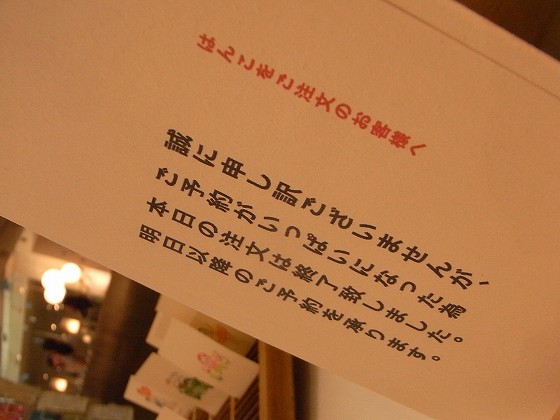 はんこをご注文のお客様へ
誠に申し訳ございませんが、
ご予約がいっぱいになった為
本日の注文は終了致しました。
明日以降のご予約を承ります。